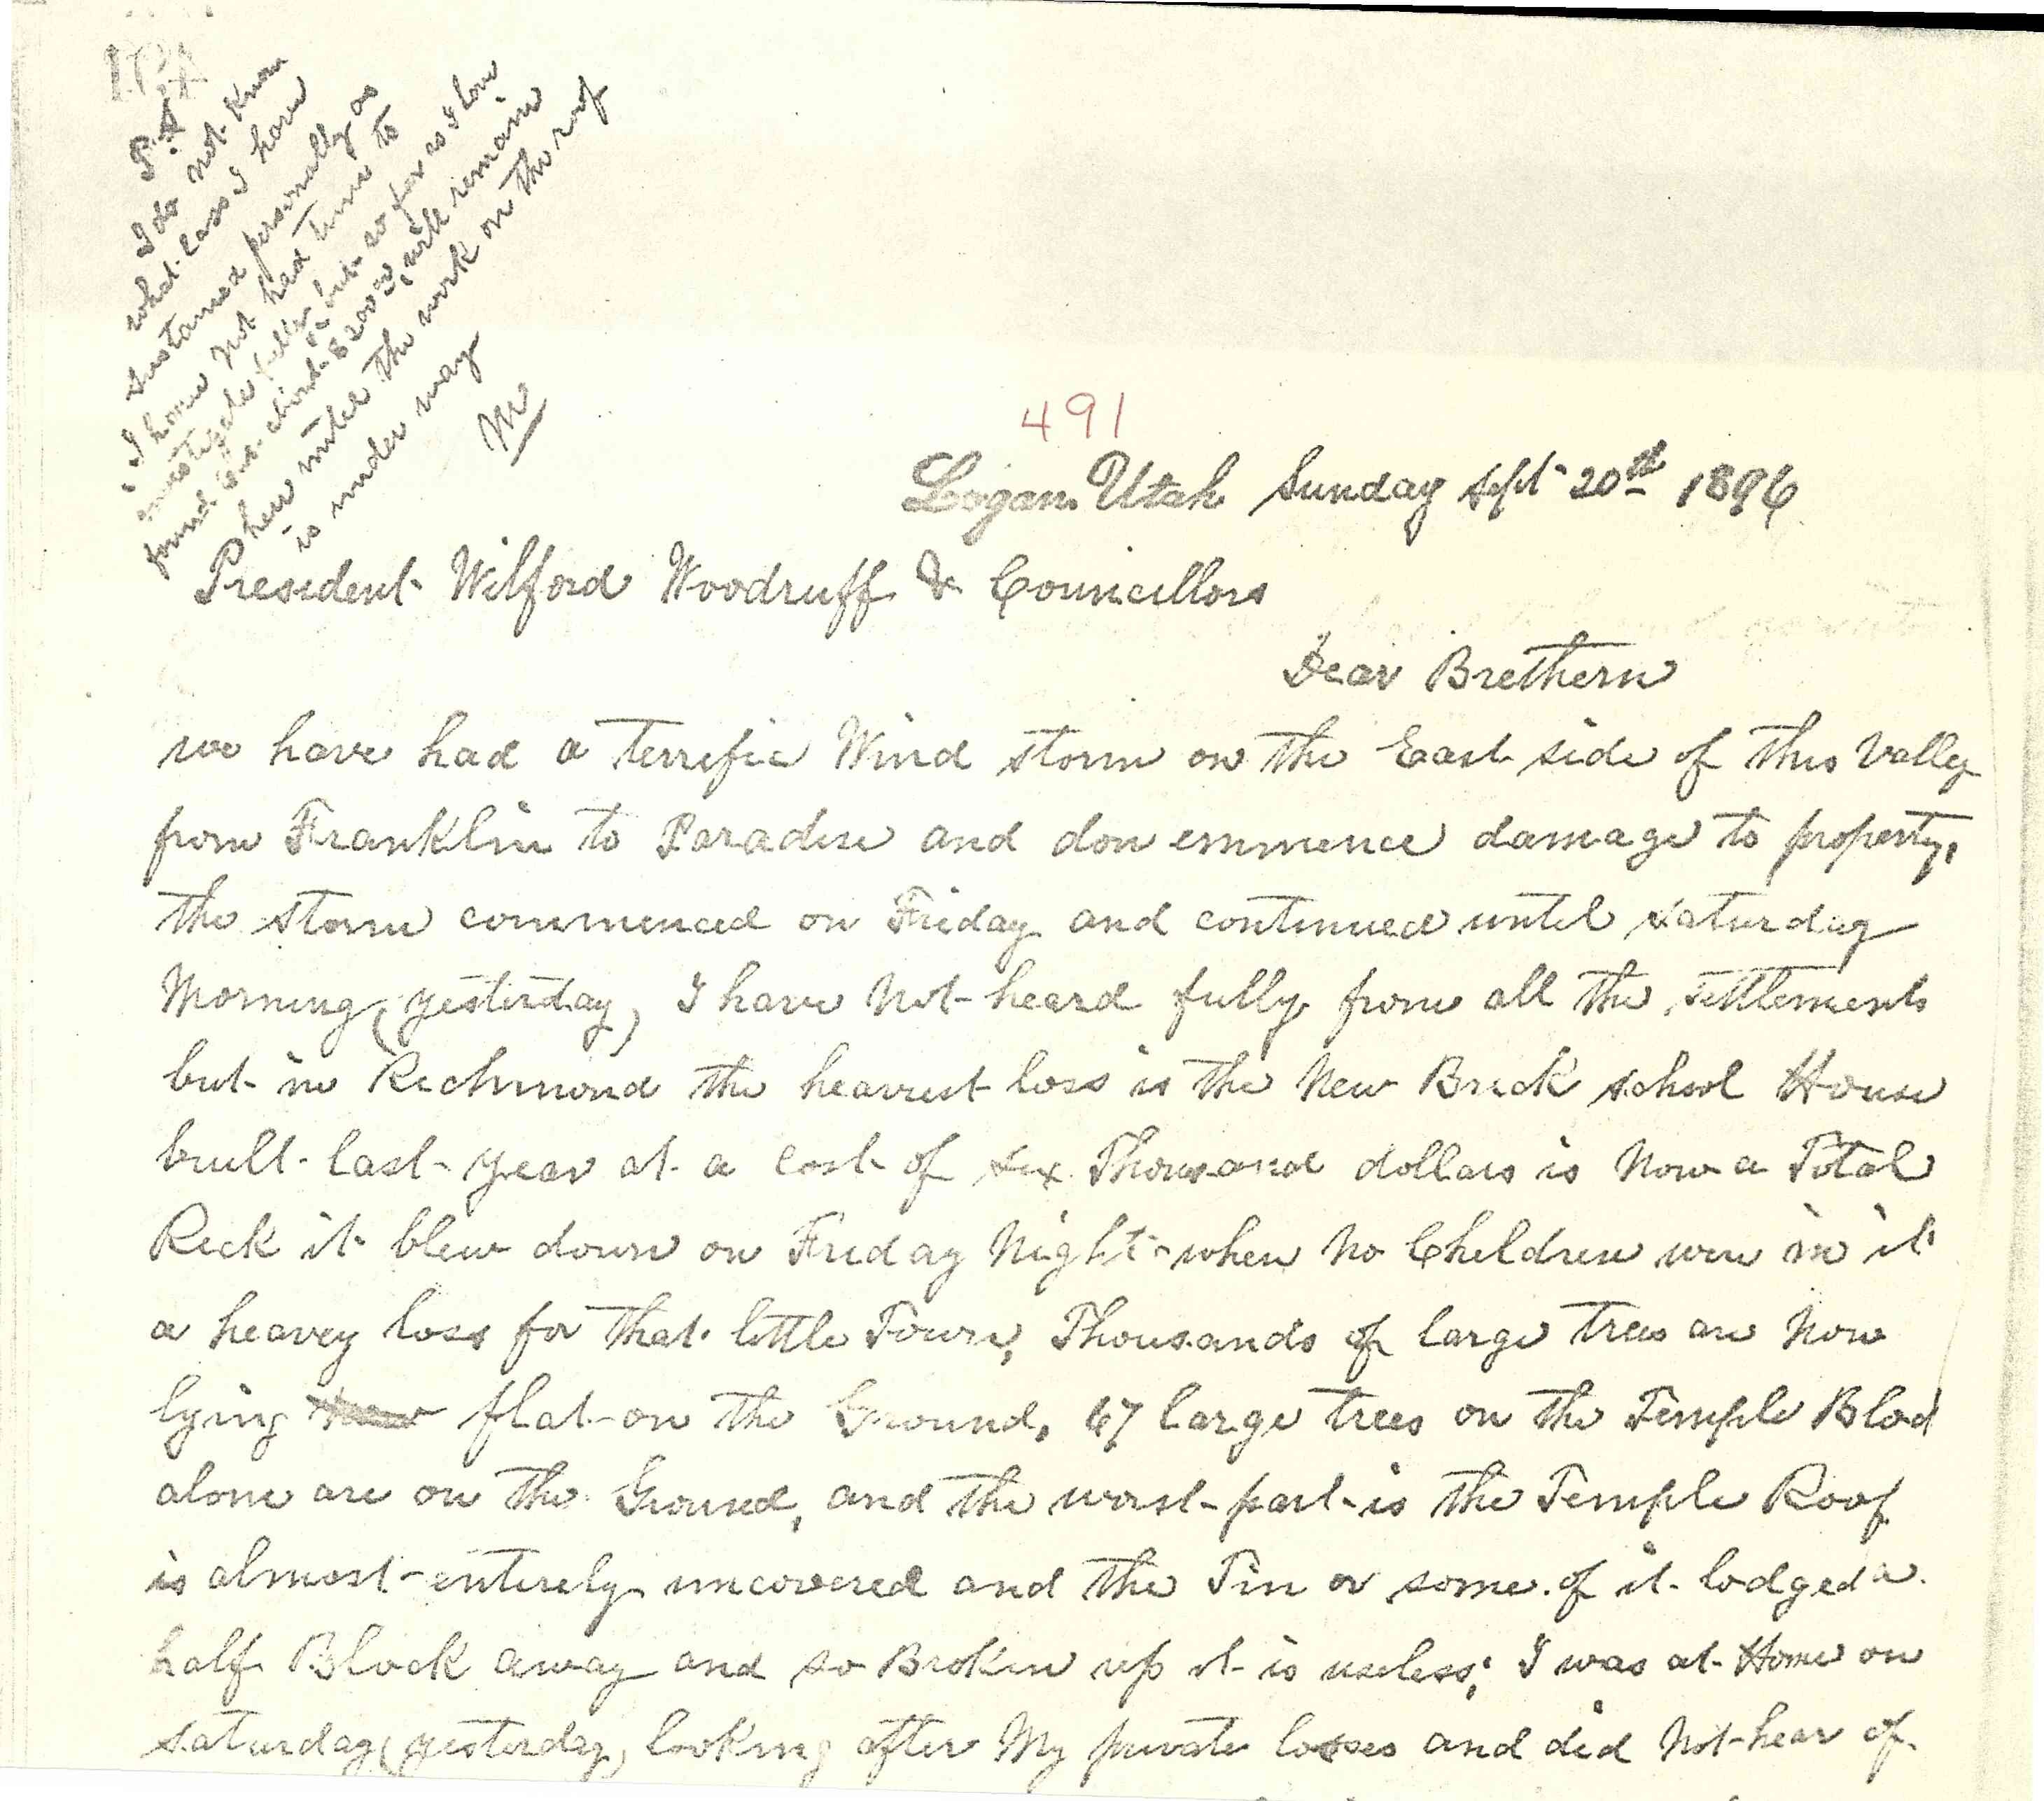 P.S.
I do not know
what loss I have
sustained personally as
I have not had time to
investigate fully but so far as I
found out about $200 will remain
here until the work on the roof
is under way
M
491
Logan Utah Sunday Sept 20th 1896
President Wilford Woodruff & Councillors
Dear Brethern
we have had a terrific Wind storm on the East side of this Valley
from Franklin to Paradise and don emmence damage to property,
the storm commenced on Friday and continued until saturday
Morning (yesterday) I have Not heard fully from all the settlements
but in Richmond the heaviest loss is the New Brick school House
built last year at a cost of six Thousand dollars is Now a Total
Reck it blew down on Friday Night when No Children were in it
a heavey loss for that little Town, Thousands of large trees are Now
lying flat on the Ground, 67 large trees on the Temple Block
alone are on the Ground, and the worst part is the Temple Roof
is almost entirely uncovered and the Tin or some of it lodged a
half Block away and so Broken up it is useless; I was at Home on
saturday (yesterday) looking after My private losses and did Not hear of